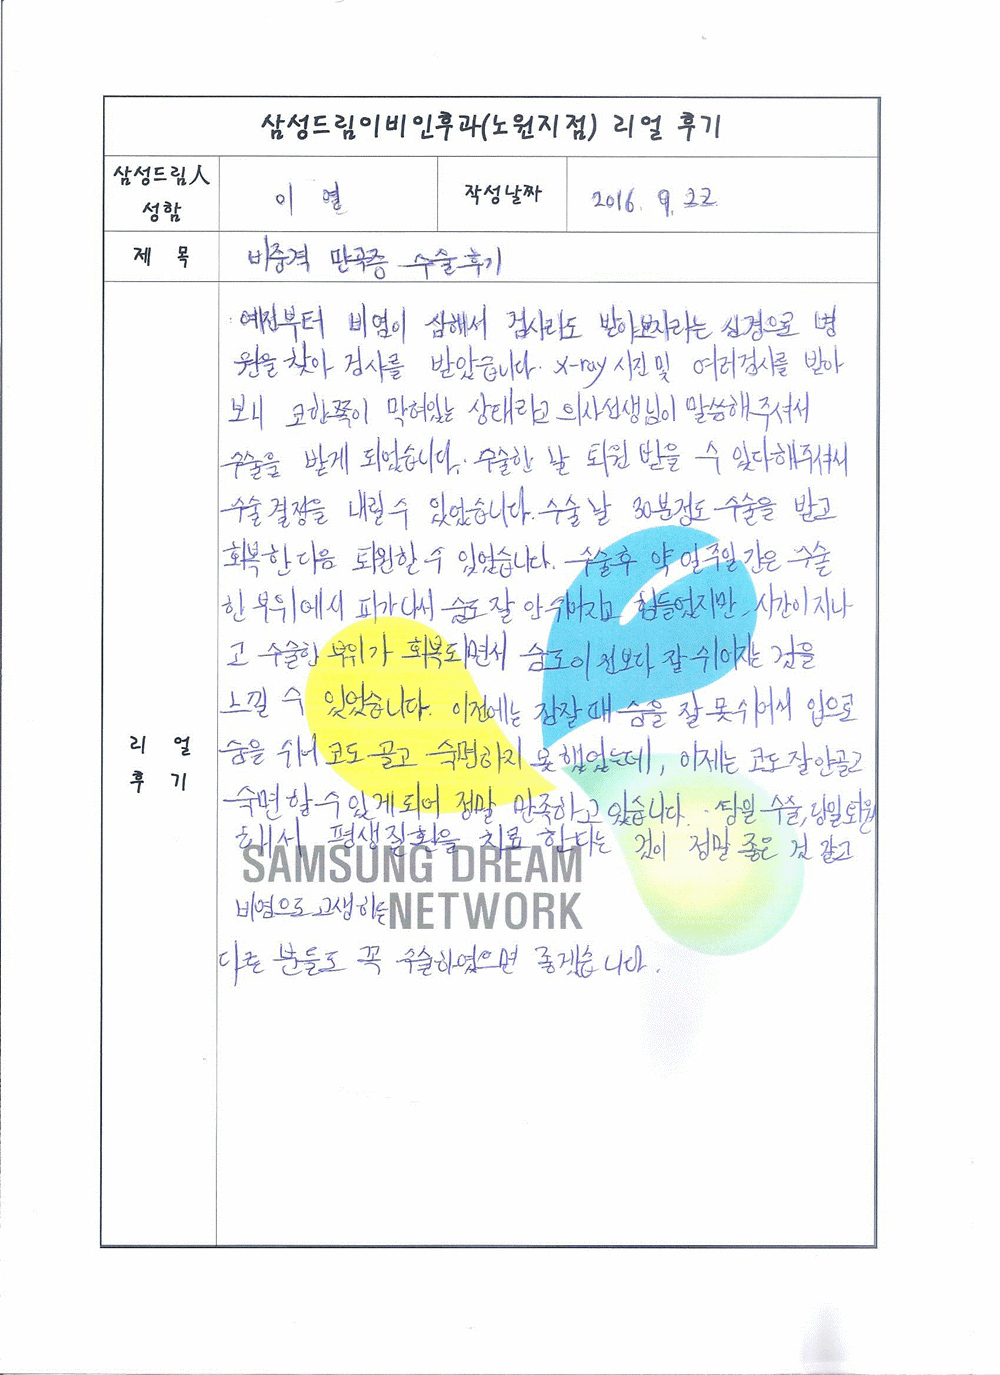 삼성드림이비인후과(노원지점) 리얼 후기
삼성드림人 성함
이 열
작성날짜
2016. 9. 22.
제 목
비중격 만곡증 수술후기
리 얼
후 기
예전부터 비염이 심해서 검사라도 받아보자라는 심경으로 병
원을 찾아 검사를 받았습니다. X-ray 사진 및 여러검사를 받아
보니 코한쪽이 막혀있는 상태라고 의사선생님이 말씀해주셔서
수술을 받게 되었습니다. 수술한 날 퇴원 받을 수 있다해주셔서
수술 결정을 내릴 수 있었습니다. 수술 날 30분정도 수술을 받고
회복한다음 퇴원할 수 있었습니다. 수술후 약 일주일 간은 수술
한 부위에서 피가나서 숨도 잘 안쉬어지고 힘들었지만, 시간이 지나
고 수술한 부위가 회복되면서 숨도이 전보다 잘 쉬어지는 것을
느낄 수 있었습니다. 이전에는 잠잘때 숨을 잘 못쉬어서 입으로
숨을 쉬니 코도 골고 숙면하지 못했었는데, 이제는 코도 잘안골고
숙면 할 수 있게 되어 정말 만족하고 있습니다. 당일 수술, 당일퇴원
해서 평생질환을 치료 한다는 것이 정말 좋은 것 같고
SAMSUNG DREAM
비염으로 고생하는
NETWORK
다른 분들도 꼭 수술하였으면 좋겠습니다.